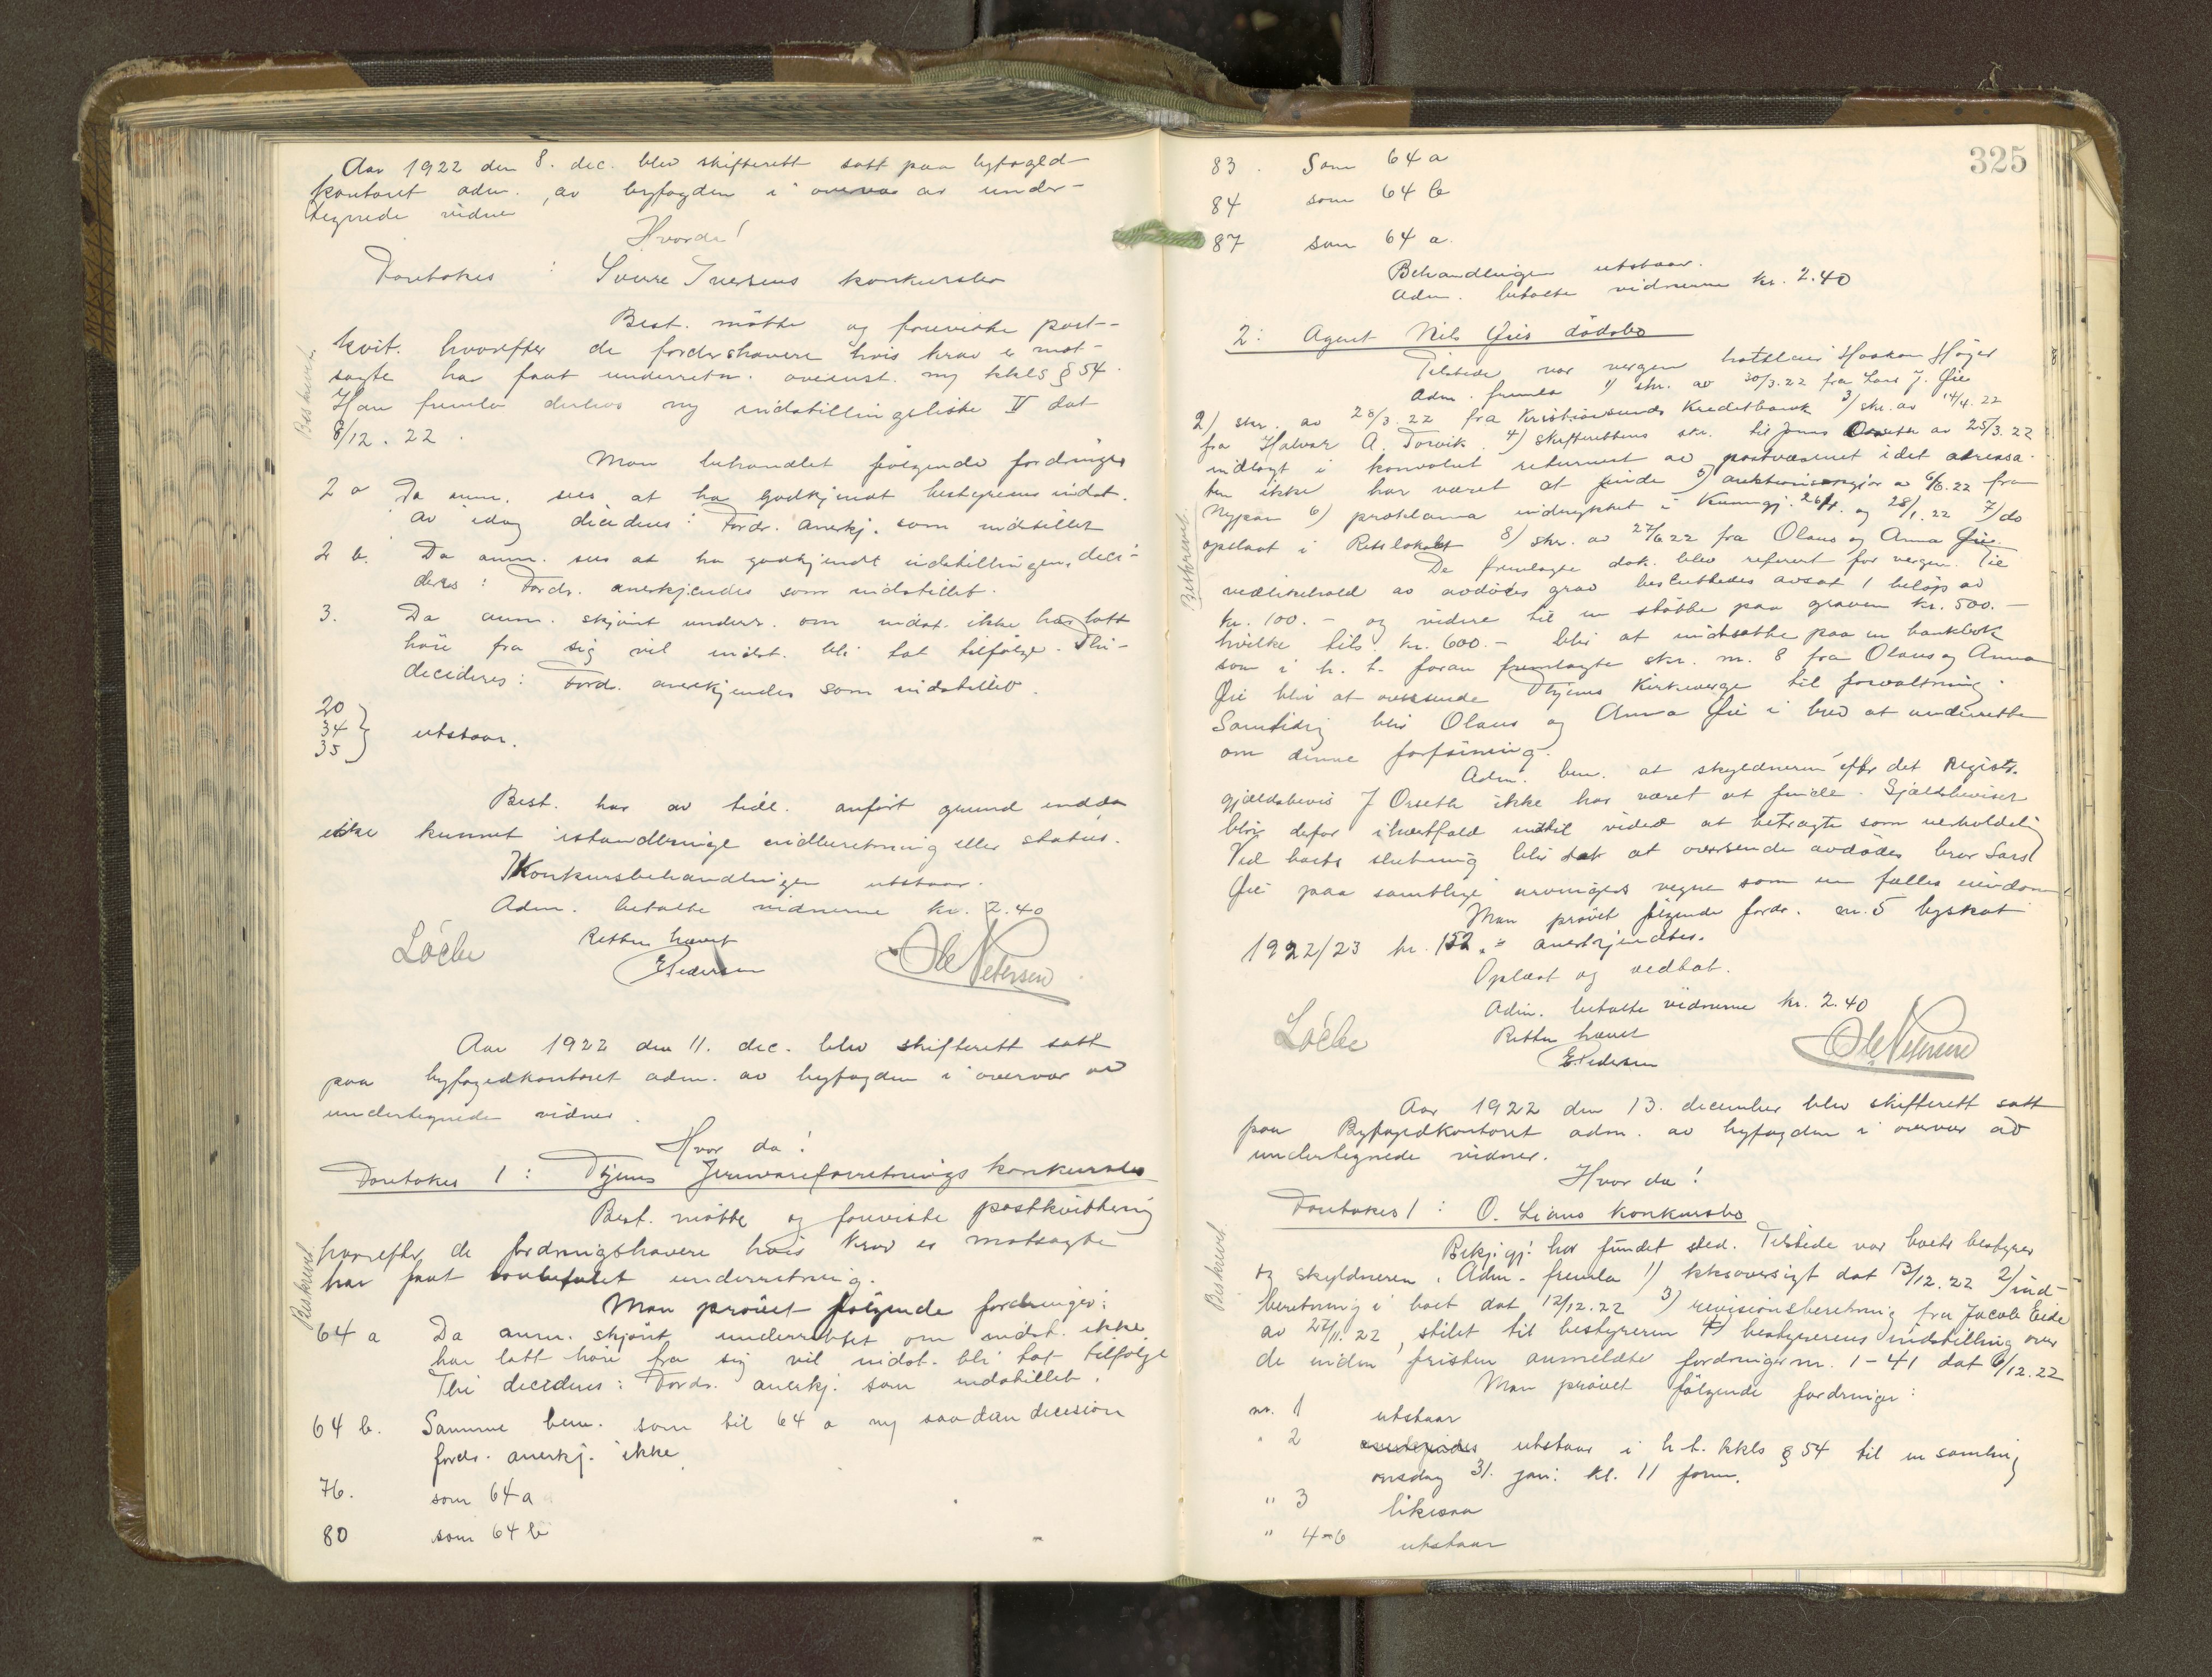 Aar 1922 den 8. dec. blev skifterett satt paa byfoged-
kontoret adm. av byfogden i overvær av under-
tegnede vidner
Hvorda!
Foretokes : Sverre Iversens konkursbo
Best. møtte og foreviste post-
kvit. hvorefter de fordr.shavere hvis krav er mot-
sagte har faat underretn. overenst. m kkls § 54.
Han fremla derhos ny indstillingsliste V dat
8/12. 22.
Man behandlet følgende fordringer
2 a Da anm. sees at ha godkjendt bestyrerens indst.
av idag decideres: Fordr. anerkj. som indstillet
2 b. Da anm. sees at ha godkjendt indstillingen, deci-
deres: Fordr. anerkjendes som indstillet.
3. Da anm. skjönt underr. om indst. ikke har latt
höre fra sig vil indst. bli tat tilfölge. Thi-
decideres: Fordr. anerkjendes som indstillet.
20
34
35 } utstaar.
Best. har av tidl. anfört grund endda
ikke kunnet istandbringe indberetning eller status.
Konkursbehandlingen utstaar.
Adm. betalte vidnerne kr. 2.40
Retten hævet
Löche E Pedersen Ole Petersen
Aar 1922 den 11. dec. blev skifterett satt
paa byfogedkontoret adm. av byfogden i overvær av
undertegnede vidner.
Hvor da!
Foretokes 1: Thjems Jernvareforretnings konkursbo
Best. møtte og foreviste postkvittering
hvorefter de fordringshavere hvis krav er motsagte
har faat lovbefalet underretning.
Beskrevet
Man prövet fölgende fordringer:
64 a Da anm. skjönt underrettet om indst. ikke
har latt höre fra sig vil indst. bli tat tilfölge
Thi decideres: Fordr. anerkj. som indstillet.
64 b. Samme bem. som til 64 a og saadan decision
fordr. anerkj. ikke
76. som 64 a
80 som 64 b
325
83. Som 64 a
84 som 64 b
87 som 64 a.
Behandlingen utstaar.
Adm. betalte vidnerne kr. 2.40
2: Agent Nils Øies dödsbo
Tilstede var vergen hoteleier Haakon Höyer
Adm. fremla 1) skr. av 30/3. 22 fra Lars J. Øie
2) skr. av 28/3. 22 fra Kristiansunds Kreditbank 3) skr. av 14/4. 22
fra Halvar A. Torvik. 4) skifterettens skr. til Jonas Orseth av 25/3. 22
indlagt i konvolut returnert av postvæsenet idet adressa-
ten ikke har været at finde 5) fra
6) proklama indrykket i Kunngj. og 28/1. 22 7) do
opslaat i Retslokalet 8) skr. av 27/6 22 fra Olaus og Anna Øie.
Beskrevet.
De fremlagte dok. blev referert for vergen. Til
vedlikehold av avdödes grav besluttedes avsat 1 belöp av
kr. 100.- og videre til en støtte paa graven kr. 500.-
hvilke tils. kr. 600.- blir at indsætte paa en bankbok
som i h. t. foran fremlagte skr. nr. 8 fra Olaus og Anna
Øie blir at oversende Thjems Kirkeverge til forvaltning.
Samtidig blir Olaus og Anna Øie i brev at underrette
om denne forføining.
Adm. bem. at skyldneren efter det registr.
gjældsbevis J Orseth ikke har været at finde. Gjældsbeviset
blir derfor ihvertfald indtil videre at betragte som uerholdelig
Ved boets slutning blir det at oversende avdödes bror Lars
Øie paa samtlige arvingers vegne som en fælles eiendom.
Man prövet fölgende fordr. nr. 5 byskat
1922/23 kr. 152.- anerkjendtes.
Oplæst og vedtat.
Adm. betalte vidnerne kr. 2.40
Retten hævet
Löche E. Pedersen Ole Petersen
Aar 1922 den 13. december blev skifterett satt
paa Byfogedkontoret adm. av byfogden i overvær av
undertegnede vidner.
Hvor da!
Foretokes 1: O. Lians Konkursbo
Bekj.gj. har fundet sted. Tilstede var boets bestyrer
og skyldneren. Adm. fremla 1) kksoversigt dat 13/12. 22 2) ind-
beretning i boet dat. 12/12. 22 3) revisionsberetning fra Jacob Eide
Beskrevet
av 27/11. 22, stilet til bestyreren 4) bestyrerens indstilling over
de inden fristen anmeldte fordringer nr. 1-41 dat 6/12. 22
Man prövet fölgende fordringer:
nr. 1 utstaar
" 2 utstaar i h. t. kkls § 54 til en samling
onsdag 31. jan: kl. 11 form.
" 3 likesaa
" 4-6 utstaar